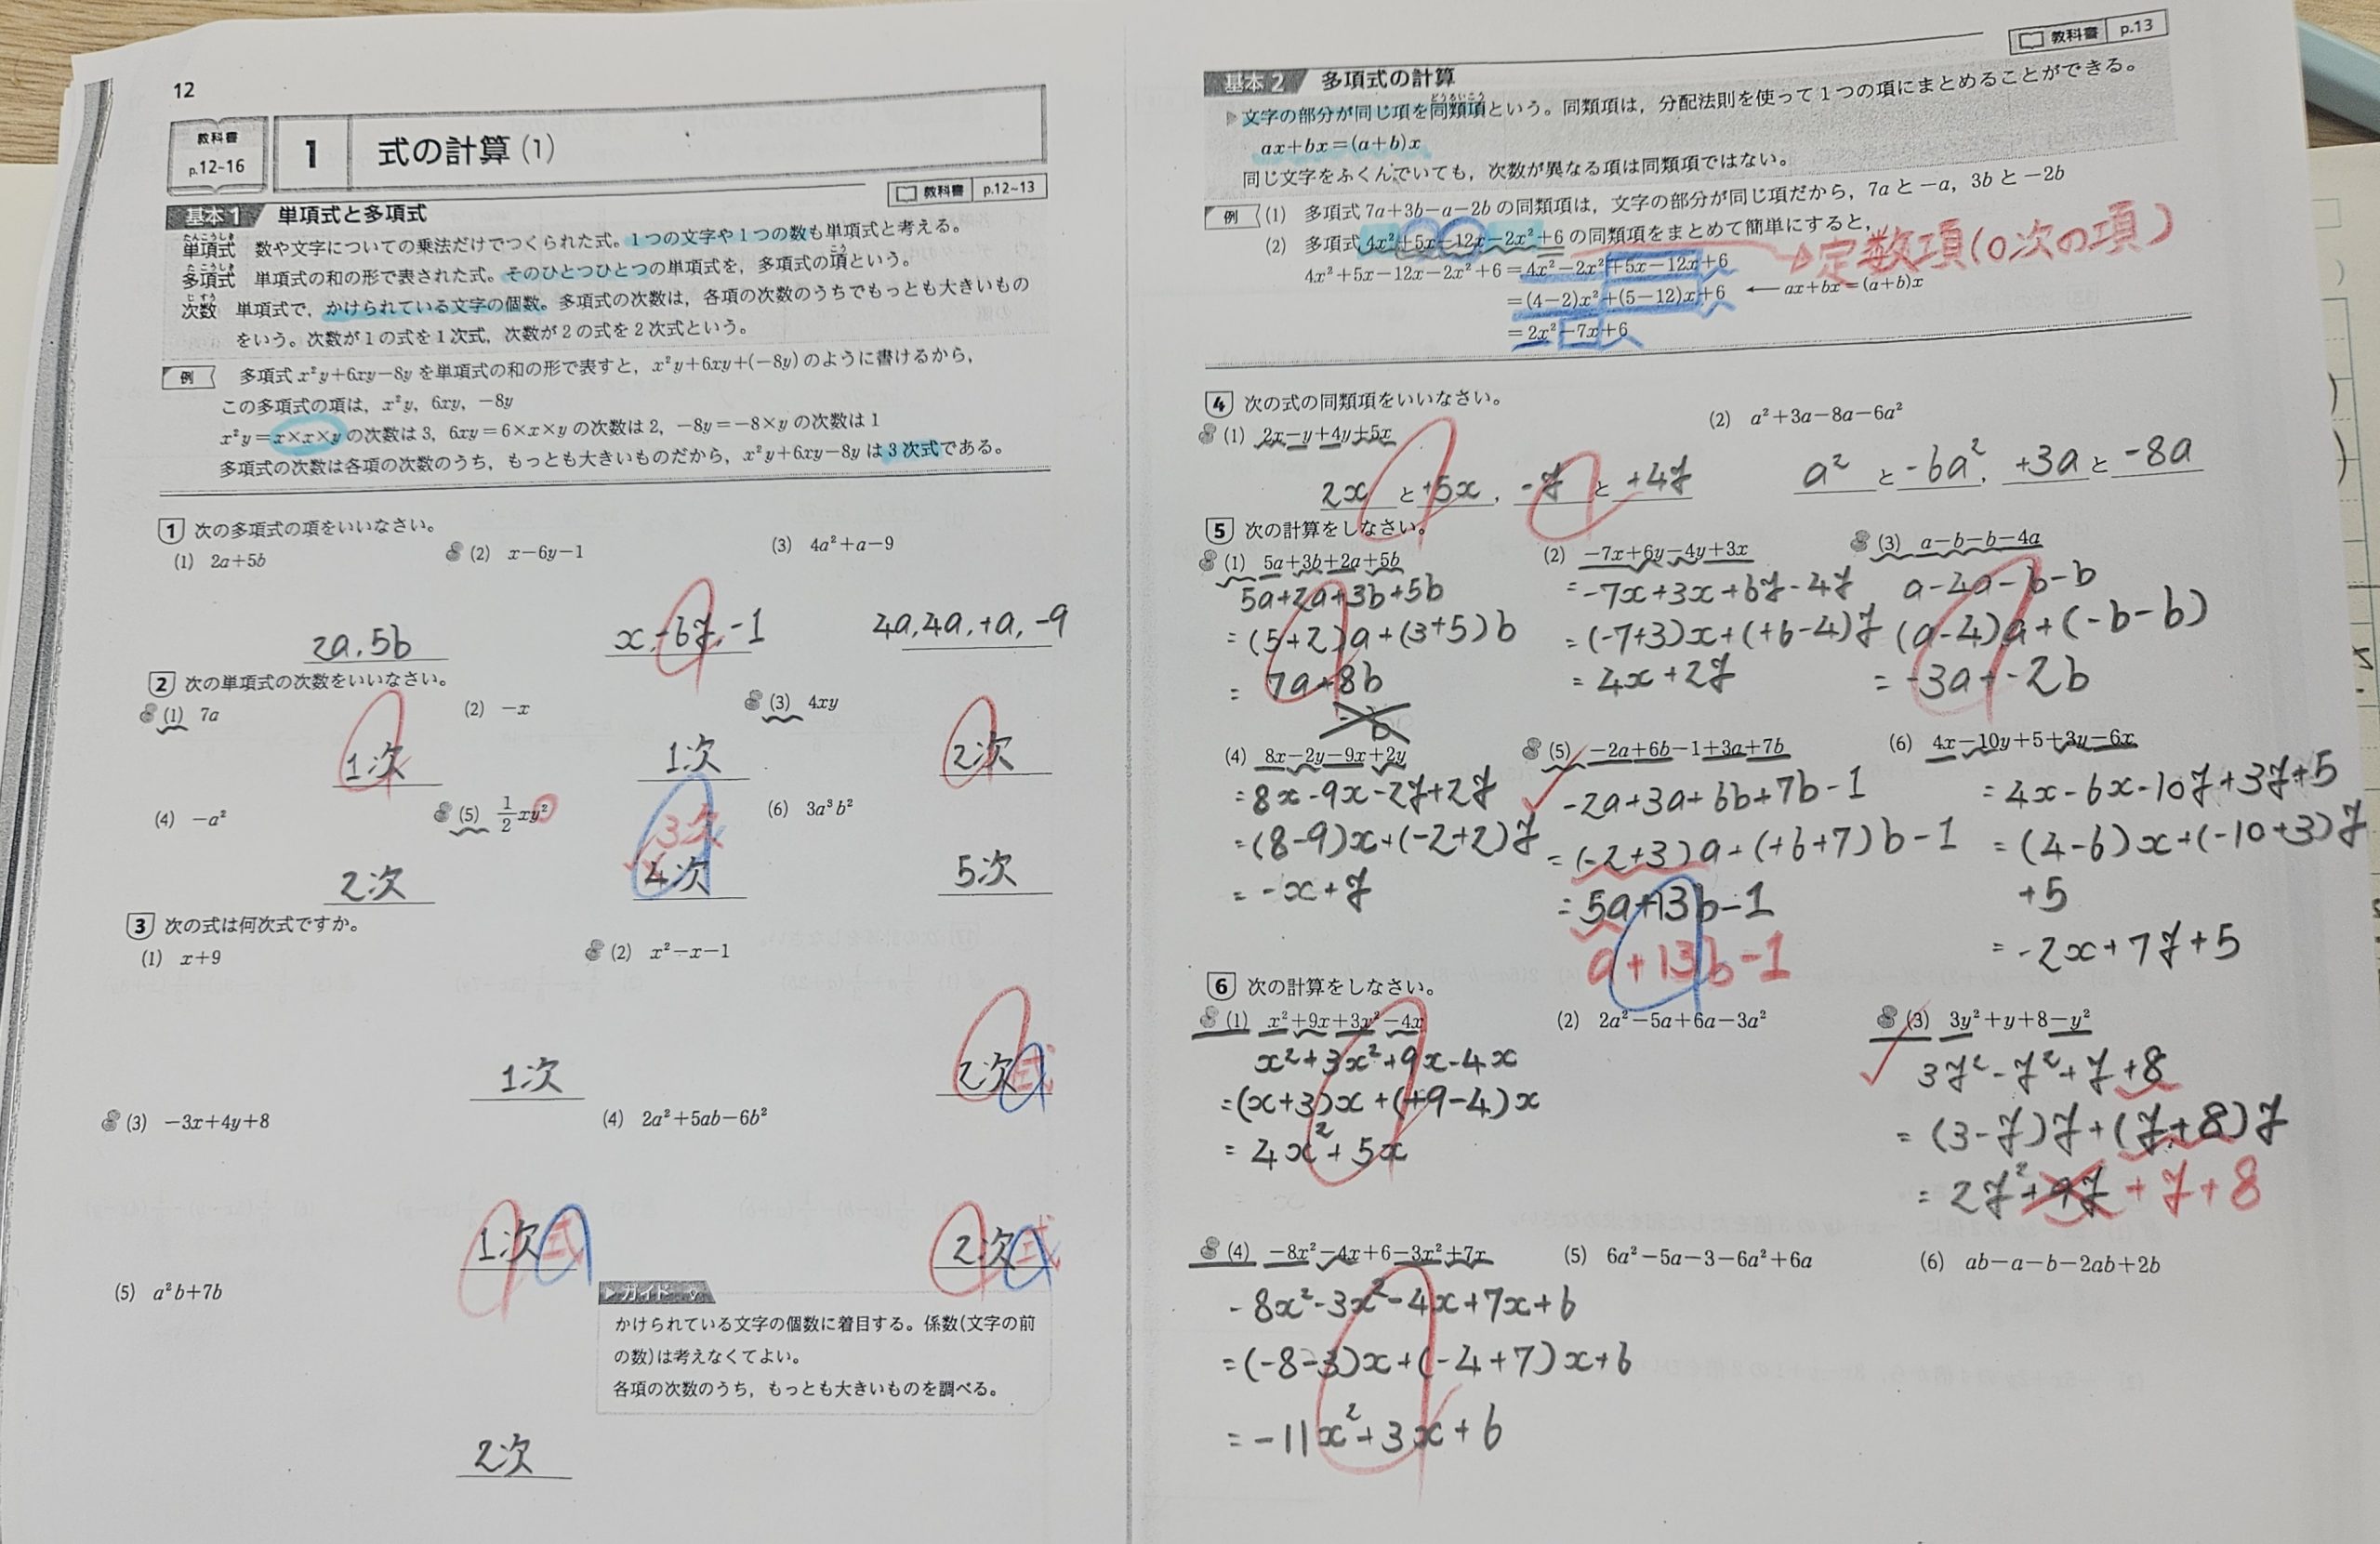 12
教科書
p.12~16
1 式の計算(1)
教科書 p.12~13
基本1 単項式と多項式
たんこうしき
単項式 数や文字についての乗法だけでつくられた式。1つの文字や1つの数も単項式と考える。
たこうしき こう
多項式 単項式の和の形で表された式。そのひとつひとつの単項式を,多項式の項という。
じすう
次数 単項式で,かけられている文字の個数。多項式の次数は,各項の次数のうちでもっとも大きいもの
をいう。次数が1の式を1次式,次数が2の式を2次式という。
例 多項式 x²y+6xy−8y を単項式の和の形で表すと,x²y+6xy+(−8y) のように書けるから,
この多項式の項は,x²y,6xy,−8y
x²y=x×x×y の次数は3,6xy=6×x×y の次数は2,−8y=−8×y の次数は1
多項式の次数は各項の次数のうち,もっとも大きいものだから,x²y+6xy−8y は3次式である。
1 次の多項式の項をいいなさい。
(1) 2a+5b (2) x−6y−1 (3) 4a²+a−9
2a,5b x,−6y,−1 4a,4a,+a,−9
2 次の単項式の次数をいいなさい。
(1) 7a (2) −x (3) 4xy
1次 1次 2次
(4) −a² (5) 1/2xy² (6) 3a³b²
3次
2次 4次 5次
3 次の式は何次式ですか。
(1) x+9 (2) x²−x−1
1次 2次式
(3) −3x+4y+8 (4) 2a²+5ab−6b²
1次式 2次式
(5) a²b+7b
ガイド
かけられている文字の個数に着目する。係数(文字の前
の数)は考えなくてよい。
各項の次数のうち,もっとも大きいものを調べる。
2次
教科書 p.13
基本2 多項式の計算
どうるいこう
文字の部分が同じ項を同類項という。同類項は,分配法則を使って1つの項にまとめることができる。
ax+bx=(a+b)x
同じ文字をふくんでいても,次数が異なる項は同類項ではない。
例 (1) 多項式 7a+3b−a−2b の同類項は,文字の部分が同じ項だから,7a と −a,3b と −2b
(2) 多項式 4x²+5x−12x−2x²+6 の同類項をまとめて簡単にすると,
定数項(0次の項)
4x²+5x−12x−2x²+6=4x²−2x²+5x−12x+6
=(4−2)x²+(5−12)x+6 ← ax+bx=(a+b)x
=2x²−7x+6
4 次の式の同類項をいいなさい。
(1) 2x−y+4y+5x (2) a²+3a−8a−6a²
2x と +5x , −y と +4y a² と −6a² , +3a と −8a
5 次の計算をしなさい。
(1) 5a+3b+2a+5b (2) −7x+6y−4y+3x (3) a−b−b−4a
5a+2a+3b+5b =−7x+3x+6y−4y a−4a−b−b
=(5+2)a+(3+5)b =(−7+3)x+(+6−4)y (a−4)a+(−b−b)
= 7a+8b = 4x+2y = −3a+−2b
(4) 8x−2y−9x+2y (5) −2a+6b−1+3a+7b (6) 4x−10y+5+3y−6x
=8x−9x−2y+2y −2a+3a+6b+7b−1 =4x−6x−10y+3y+5
=(8−9)x+(−2+2)y =(−2+3)a+(+6+7)b−1 =(4−6)x+(−10+3)y
= −x+y =5a+13b−1 +5
a+13b−1 =−2x+7y+5
6 次の計算をしなさい。
(1) x²+9x+3x²−4x (2) 2a²−5a+6a−3a² (3) 3y²+y+8−y²
x²+3x²+9x−4x 3y²−y²+y+8
=(x+3)x+(+9−4)x =(3−y)y+(y+8)y
= 4x²+5x = 2y²+9y +y+8
(4) −8x²−4x+6−3x²+7x (5) 6a²−5a−3−6a²+6a (6) ab−a−b−2ab+2b
−8x²−3x²−4x+7x+6
=(−8−3)x+(−4+7)x+6
=−11x²+3x+6